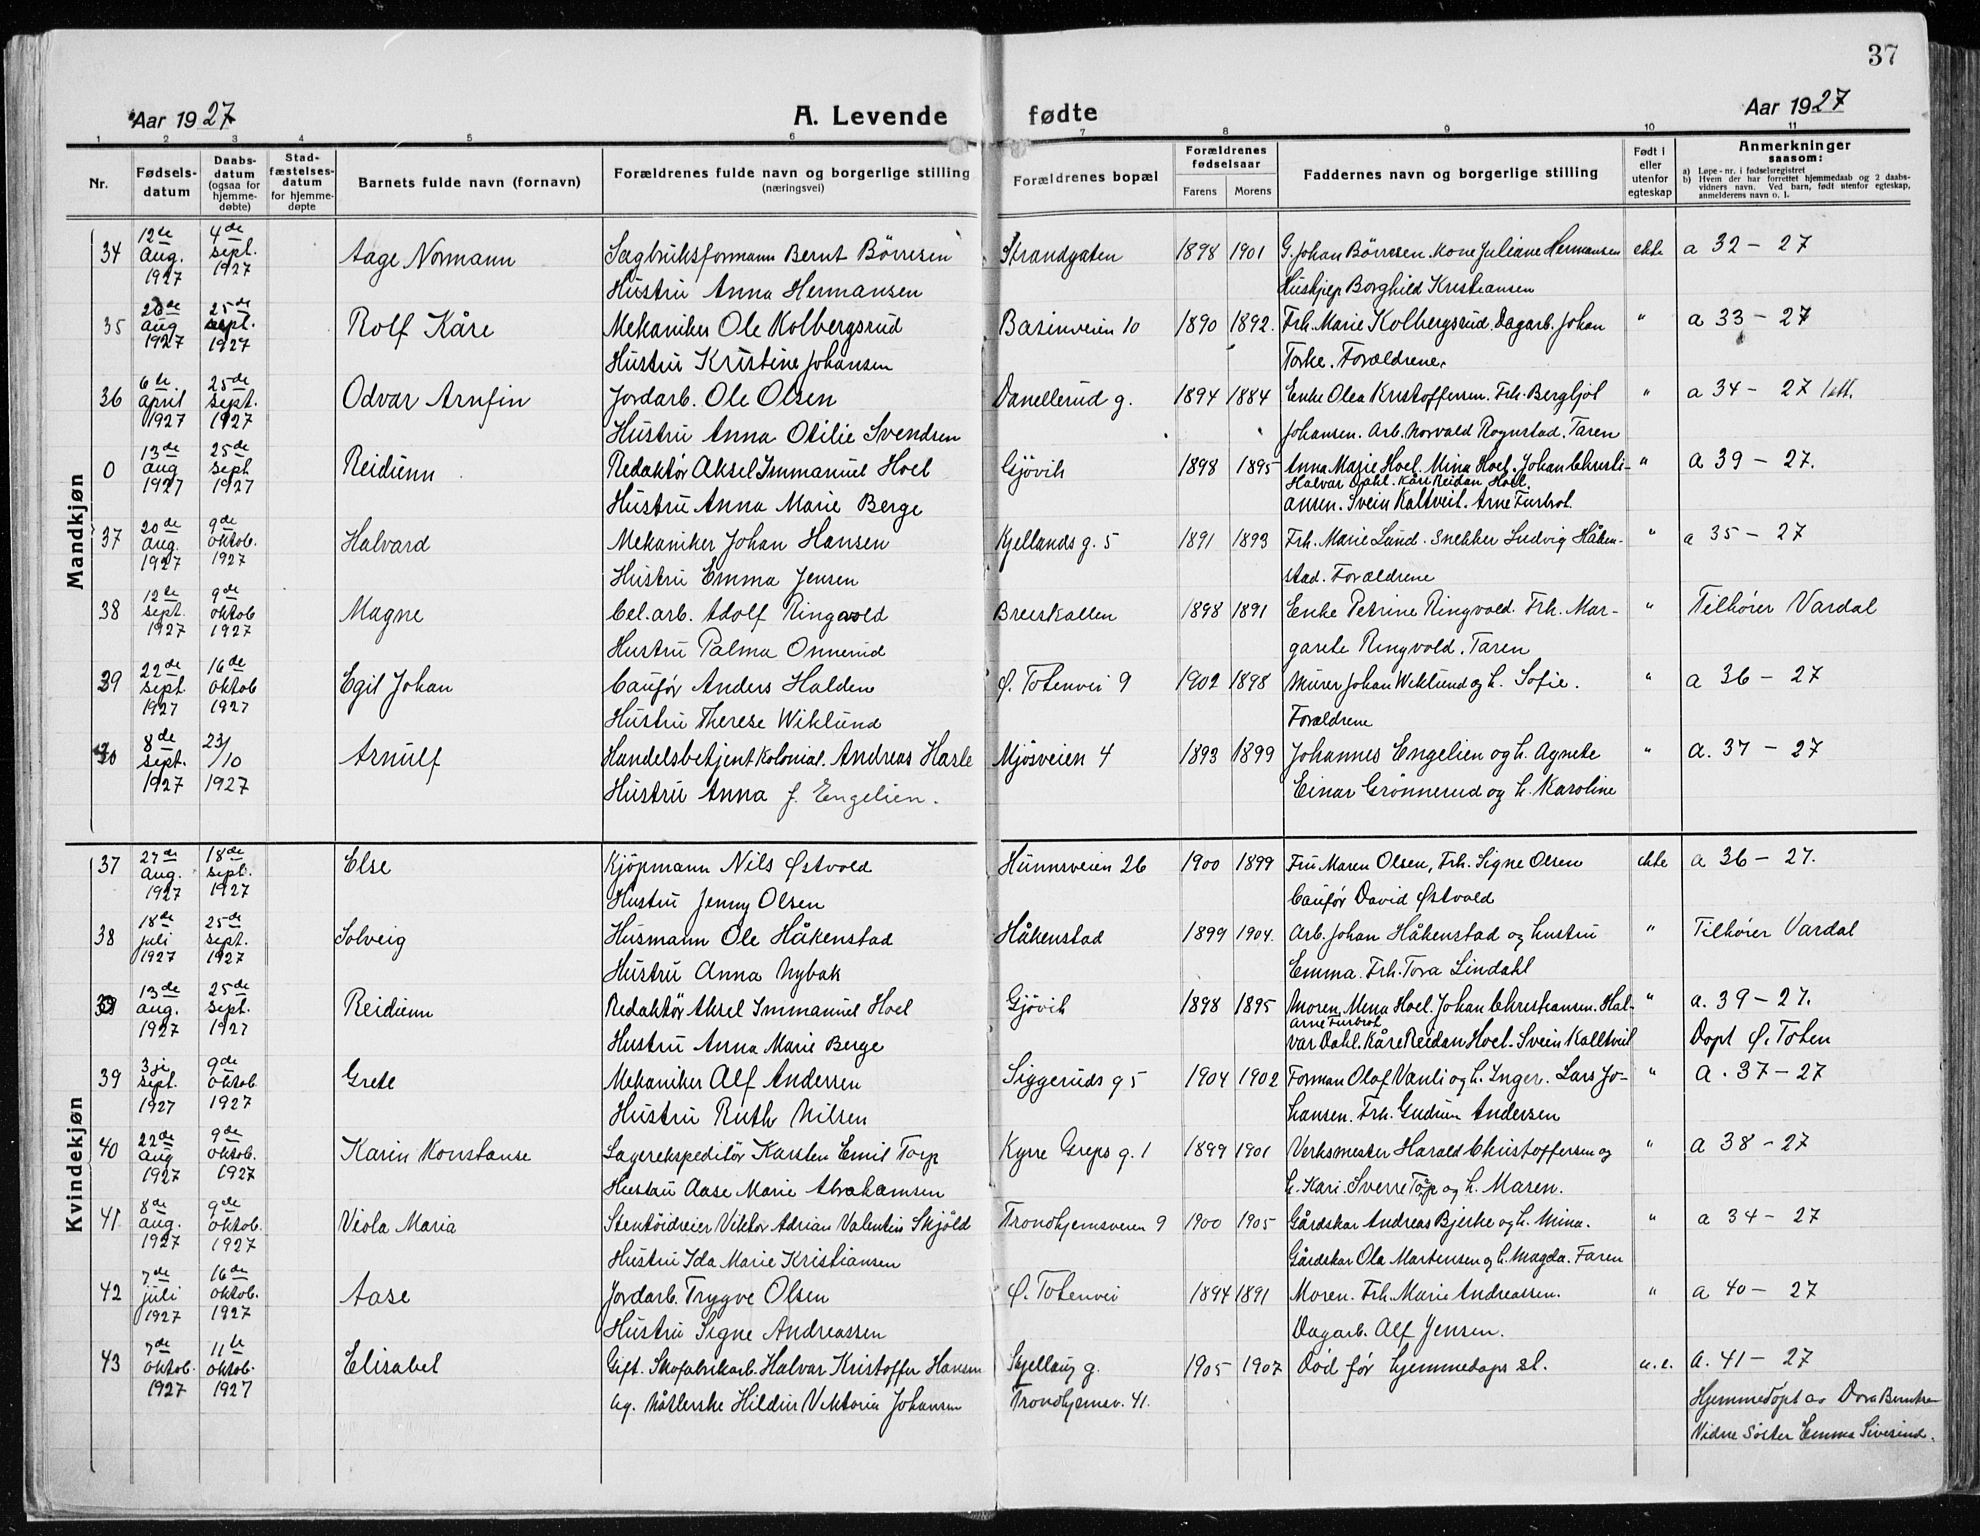 37
Aar 1927 A. Levende fødte Aar 1927
1 2 3 4 5 6 7 8 9 10 11
Nr. Fødsels-datum Daabs-datum (ogsaa for hjemme-døbte) Stad-fæstelses-datum for hjemme-døpte Barnets fulde navn (fornavn) Forældrenes fulde navn og borgerlige stilling (næringsvei) Forældrenes bopæl Forældrenes fødselsaar Farens Morens Faddernes navn og borgerlige stilling Født i eller utenfor egteskap Anmerkninger saasom:
a) Løpe-nr. i fødselsregistret
b) Hvem der har forrettet hjemmedaab og 2 daabsvidners navn. Ved barn, født utenfor egteskap, anmelderens navn o. l.
Mandkjøn
34 12te Aug. 1927 4de sept. 1927 Aage Normann Sagbruksformann Bernt Børresen Strandgaten 1898 1901 G. Johan Børresen. Kone Juliane Hermansen ekte a 32 – 27
Hustru Anna Hermansen Huskjep Borghild Kristiansen
35 26de aug 1927 25de sept. 1927 Rolf Kåre Mekaniker Ole Kolbergsrud Basinveien 10 1890 1892. Frk. Marie Kolbergsrud. Dagarb. Johan " a 33 – 27
Hustru Kristine Johansen Torke. Forældrene.
36 6te april 1927 25de sept. 1927 Odvar Arnfin Jordarb. Ole Olsen Danellerud g. 1894 1884 Enke Olea Kristoffersen. Frk. Bergljot " a 34 – 27 1att.
Hustru Anna Otilie Svendsen Johansen. Arb. Norvald Rognstad. Faren
0 13de aug 1927 25de sept 1927 Reidunn Redaktør Aksel Immanuel Hoel Gjøvik 1898 1895 Anna Marie Hoel. Mina Hoel. Johan Christi- " a 39 – 27.
Halvar Dahl. Kåre Reidan Hoel.
Hustru Anna Marie Berge ansen. Svein Kaltveit. Arne Furbot.
37 20de aug. 1927 9de oktob. 1927 Halvard Mekaniker Johan Hansen Kjellands g. 5 1891 1893 Frk. Marie Lund. Snekker Ludvig Håken- " a 35 – 27
Hustru Emma Jensen stad. Forældrene
38 12te sept. 1927 9de oktob 1927 Magne Cel. arb. Adolf Ringvold Breiskallen 1898 1891 Enke Petrine Ringvold. Frk. Mar- " Tilhører Vardal
Hustru Palma Onnerud garete Ringvold. Faren
39 22de sept 1927 16de oktob 1927 Egil Johan Caufør Anders Halden Ø. Totenvei 9 1902 1898 Murer Johan Wiklund og h. Sofie. " a 36 – 27
Hustru Therese Wiklund Forældrene
40 8de sept. 1927 23/10 1927 Arnulf Handelsbetjent Kolonial. Andreas Hasle Mjøsveien 4 1893 1899 Johannes Engelien og h. Agnete " a. 37 – 27
Hustru Anna f. Engelien. Einar Grønnerud og h. Karoline
Kvindekjøn
37 27de aug. 1927 18de sept. 1927 Else Kjøpmann Nils Østvold Hunnsveien 26 1900 1899 Fru Maren Olsen, Frk. Signe Olsen ekte a 36 – 27.
Hustru Jenny Olsen Caufør David Østvold
38 18de juli 1927 25de sept. 1927 Solveig Husmann Ole Håkenstad Håkenstad 1899 1904. Arb. Johan Håkenstad og hustru " Tilhører Vardal
Hustru Anna Nybak Emma. Frk. Tora Lindahl
39 13de aug. 1927 25de sept. 1927 Reidunn Redaktør Aksel Immanuel Hoel Gjøvik 1898 1895 Moren. Mina Hoel. Johan Christiansen. Hal- " a. 39 – 27.
Arne Furbot
Hustru Anna Marie Berge var Dahl. Kåre Reidan Hoel. Svein Kalltveit Døpt Ø. Toten
39 3je sept. 1927 9de oktob. 1927 Grete Mekaniker Alf Andersen Siggeruds g 5 1904 1902 Forman Olaf Vanli og h. Inger. Lars Jo- " a. 37 – 27
Hustru Ruth Nilsen hansen. Frk. Gudrun Andersen
40 22de aug 1927 9de oktob. 1927 Karin Konstanse Lagerekspeditør Karsten Emil Torp Kyrre Greps g. 1 1899 1901 Verksmester Harald Christoffersen og " a 38 – 27
Hustru Aase Marie Abrahamsen h. Kari. Sverre Torp og h. Maren.
41. 8de aug. 1927 9de oktob. 1927 Viola Maria Stentøidreier Viktor Adrian Valentin Skjöld Trondhjemsveien 9 1900 1905 Gårdskar Andreas Bjerke og h. Mina. " a 34 – 27
Hustru Ida Marie Kristiansen Gårdskar Ola Martensen og h. Magda. Faren
42 7de juli 1927 16de oktob. 1927 Aase Jordarb. Trygve Olsen Ø. Totenvei 1894 1891 Moren. Frk. Marie Andreassen. " a 40 – 27
Hustru Signe Andreassen Dagarb. Alf Jensen.
43 7de oktob. 1927 11te oktob. 1927 Elisabet Gift. Skofabrikarb. Halvar Kristoffer Hansen Skjellaug g. 1905 1907 Död før hjemmedaps st. u. e. a. 41 – 27
ug. Nåtlerske Hildur Viktoria Johansen Trondhjemsv. 41. Hjemmedøpt av Dora
Vidne Søster Emma Sivesind.